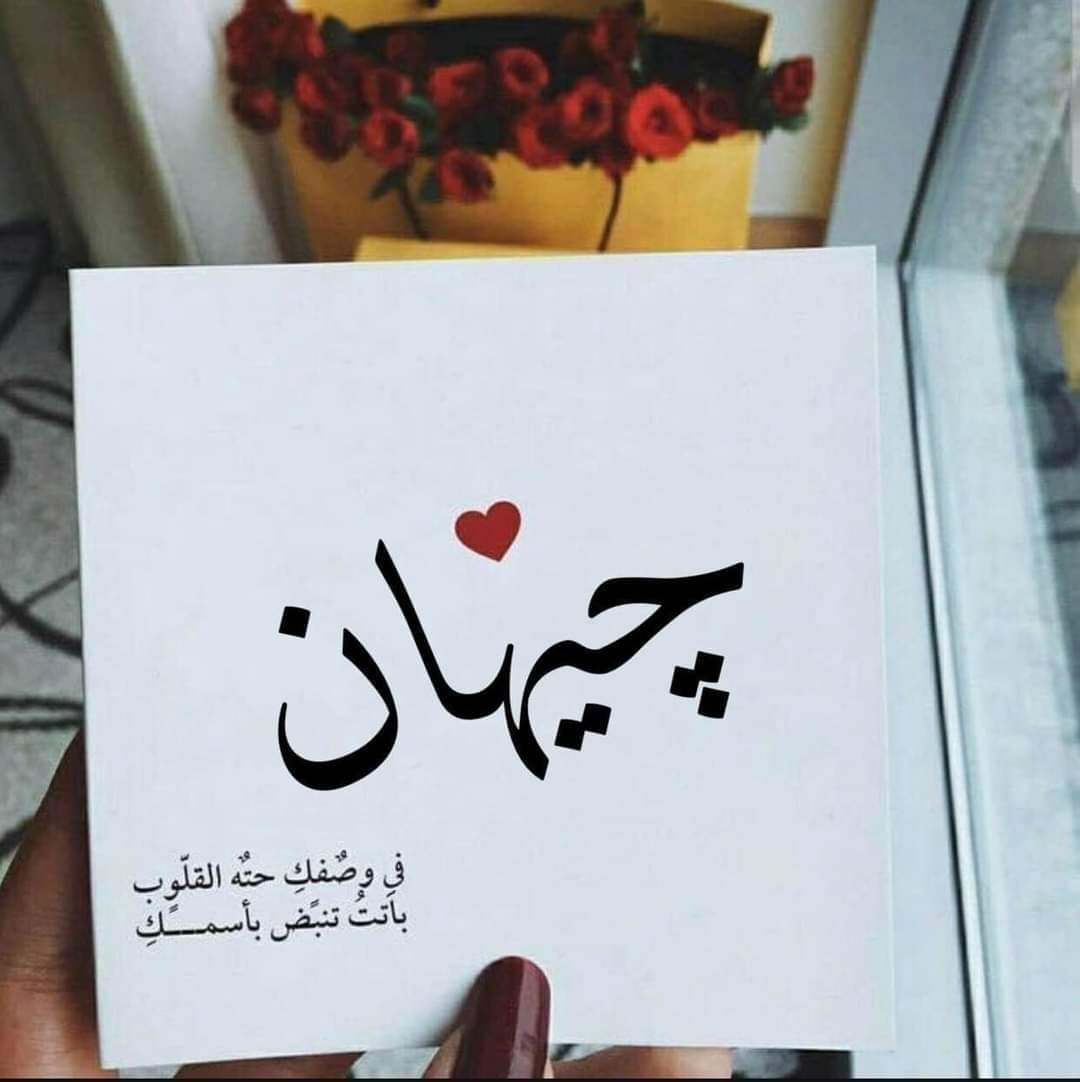 چيهان
في وصٌفكِ حتٌه القلّوب
باَتتُ تنبًض بأسمـــكًِ